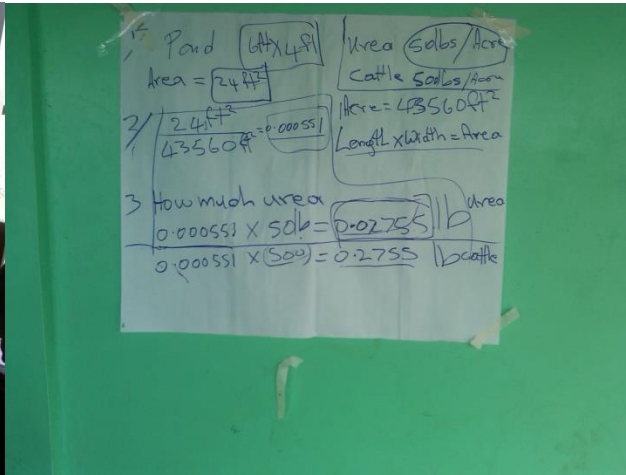 1 Pond 6ft x 4ft
Area = 24 ft²
Urea 50lbs/Acre
Cattle 500lbs/Acre
1Acre = 43560ft²
Length x Width = Area
2/ 24ft² / 43560ft² = 0.000551
3 How much urea
0.000551 x 50lb = 0.02755 lb Urea
0.000551 x (500) = 0.2755 lb cattle